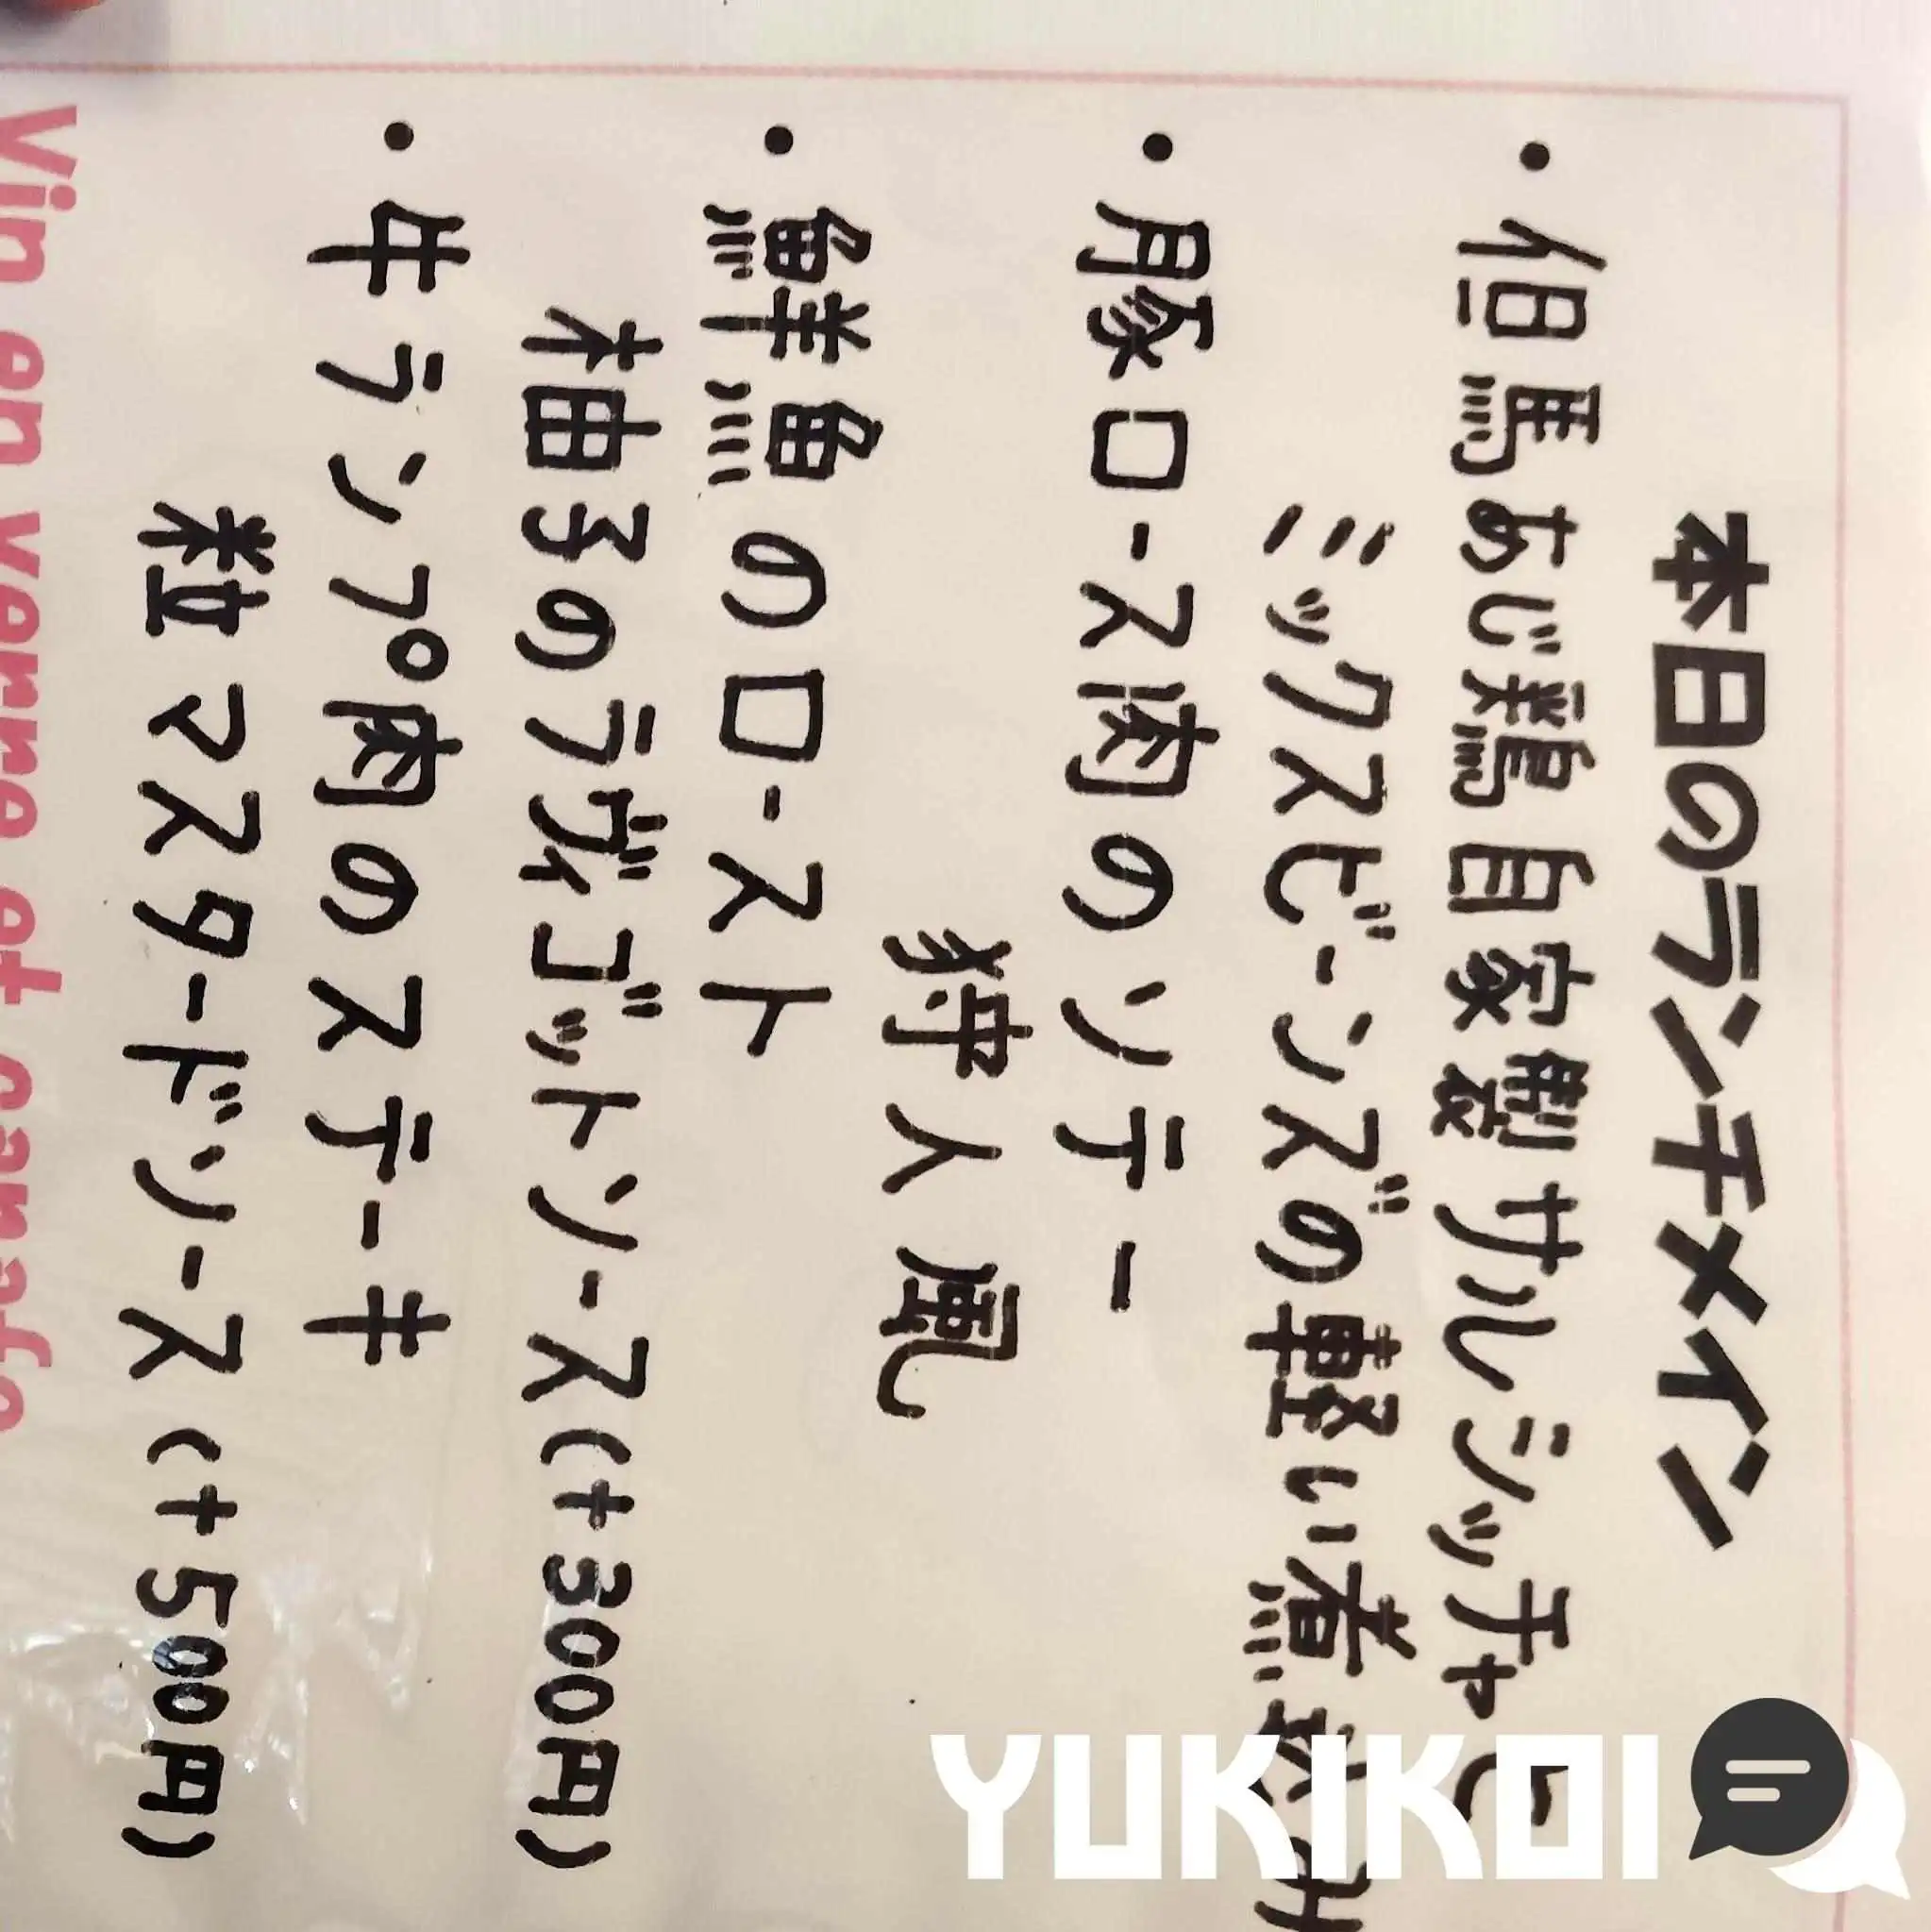 本日のランチメイン
・但馬あじ鶏自家製サルシッチャと
ミックスビーンズの軽い煮込み
・豚ロース肉のソテー
狩人風
・鮮魚のロースト
柚子のラヴィゴットソース(+300円)
・牛ランプ肉のステーキ
粒マスタードソース(+500円)
Vin en verre et carafe
YUKIKOI